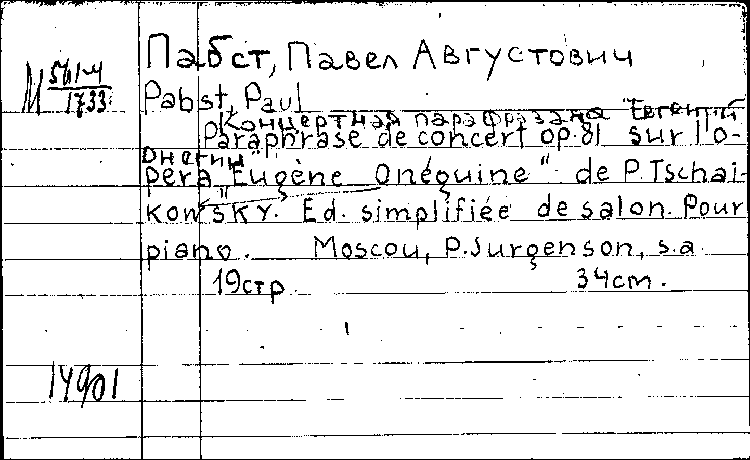 Пабст, Павел Августович
М 561-4
1733
Pabst, Paul
Концертная парафраза на "Евгений
Paraphrase de concert op. 81 sur l'o-
Онегин"
pera "Eugène Onéguine" de P. Tschai-
kowsky. Ed. simplifiée de salon. Pour
piano. Moscou, P. Jurgenson, s.a.
19 стр. 34 cm.
14901